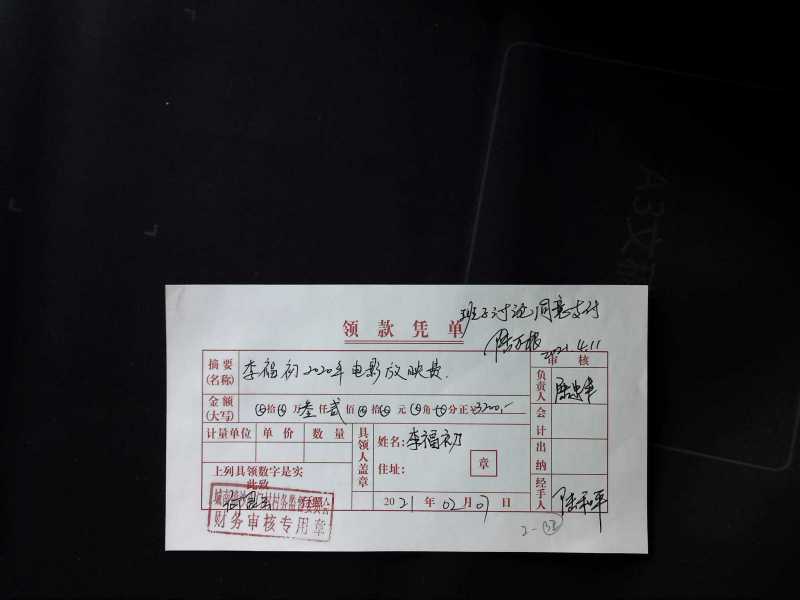 班子讨论同意支付
领款凭单
2021.4.11
审核
摘要(名称) 李福初2020年电影放映费. 负责人
金额(大写) 拾 万叁仟贰佰 拾 元 角 分正 3200,- 会计
计量单位 单价 数量 具领人盖章 姓名:李福初 出纳
住址: 章
上列具领数字是实
此致 经手人
2021年02月07日
财务审核专用章
2-
A3文